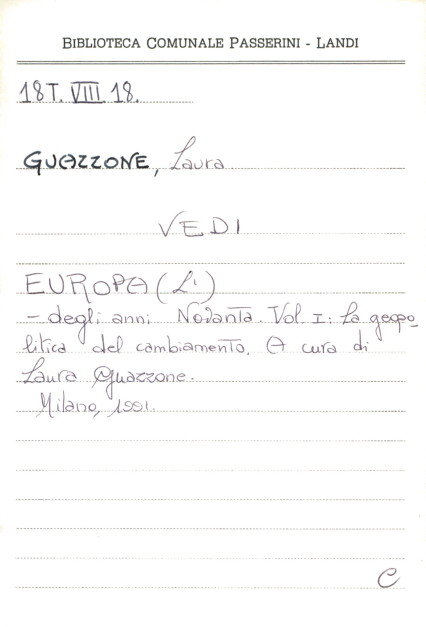 BIBLIOTECA COMUNALE PASSERINI - LANDI
18T. VIII 18.
GUAZZONE, Laura
VEDI
EUROPA (L')
- degli anni Novanta. Vol. I: La geopo
litica del cambiamento. A cura di
Laura Guazzone.
Milano, 1991.
C